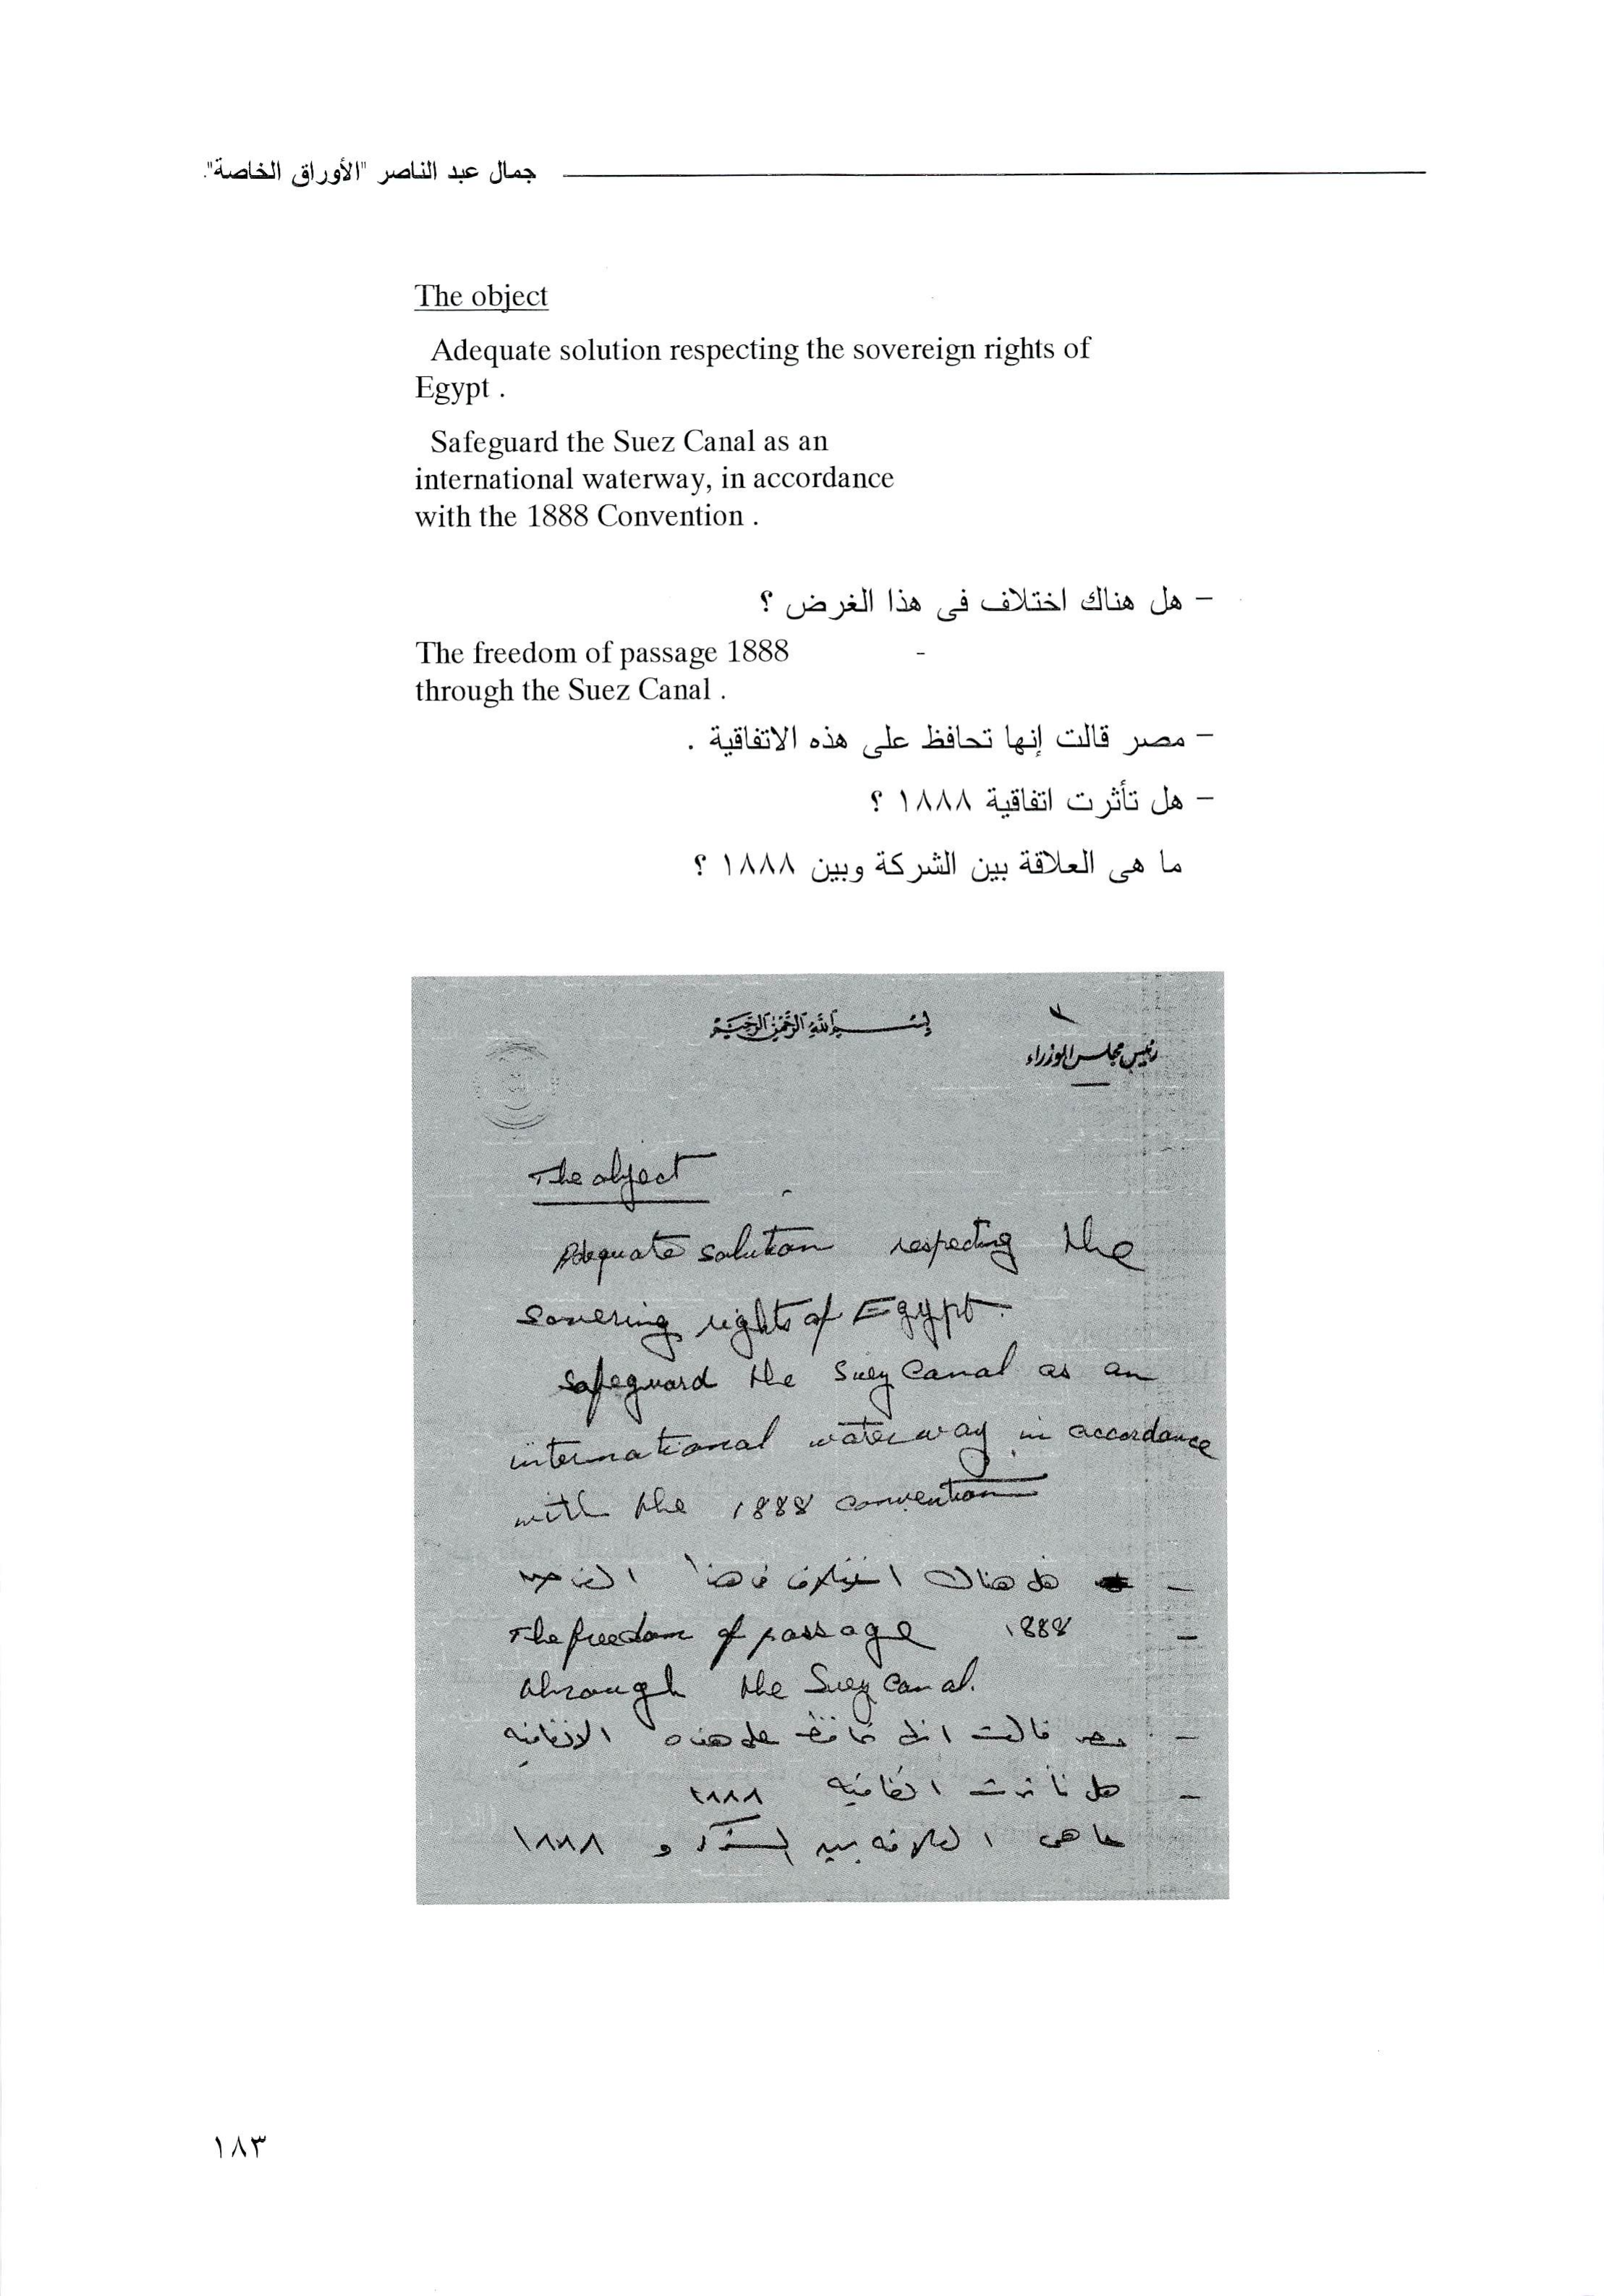 جمال عبد الناصر "الأوراق الخاصة".
The object
Adequate solution respecting the sovereign rights of
Egypt .
Safeguard the Suez Canal as an
international waterway, in accordance
with the 1888 Convention .
– هل هناك اختلاف فى هذا الغرض ؟
The freedom of passage 1888 -
through the Suez Canal .
– مصر قالت إنها تحافظ على هذه الاتفاقية .
– هل تأثرت اتفاقية ١٨٨٨ ؟
ما هى العلاقة بين الشركة وبين ١٨٨٨ ؟
بسم الله الرحمن الرحيم
رئيس مجلس الوزراء
The object
Adequate solution respecting the
sovering rights of Egypt.
safeguard the Suez Canal as an
international waterway in accordance
with the 1888 convention
– هل هناك اختلاف فى هذا الغرض
The freedom of passage 1888 –
through the Suez Canal.
– مصر قالت انها تحافظ على هذه الاتفاقيه
– هل تأثرت اتفاقيه ١٨٨٨
ما هى العلاقه بين الشركه و ١٨٨٨
١٨٣